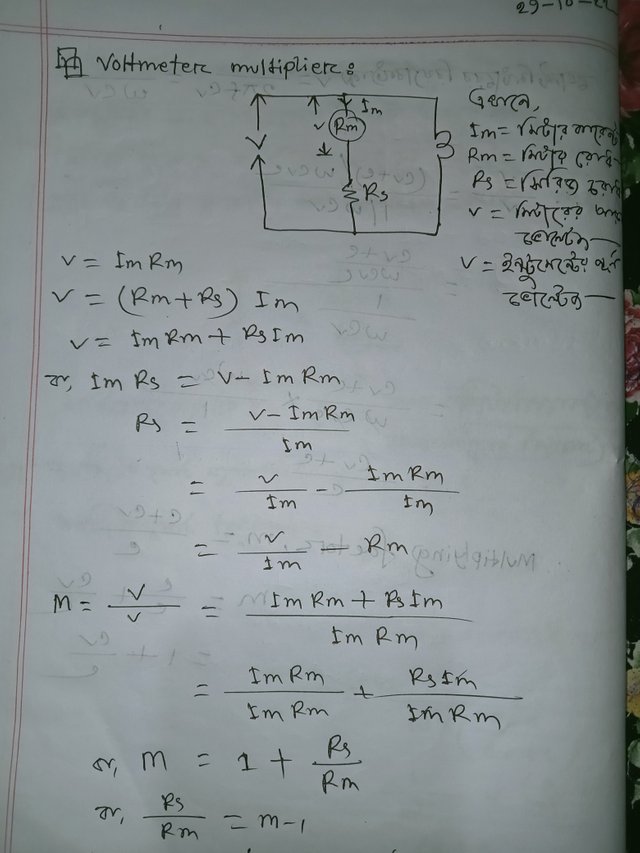 29-10-22
Voltmeterc multiplierc:
Im
V
v
Rm
Rs
এখানে,
Im = মিটার কারেন্ট
Rm = মিটার
Rs = সিরিজ
v = মিটারের
ভোল্টেজ
V = ইন্সট্রুমেন্টের
ভোল্টেজ
v = Im Rm
V = (Rm + Rs) Im
V = Im Rm + Rs Im
বা, Im Rs = V - Im Rm
Rs = V - Im Rm / Im
= V / Im - Im Rm / Im
= V / Im - Rm
M = V / v = Im Rm + Rs Im / Im Rm
= Im Rm / Im Rm + Rs Im / Im Rm
বা, m = 1 + Rs / Rm
বা, Rs / Rm = m - 1